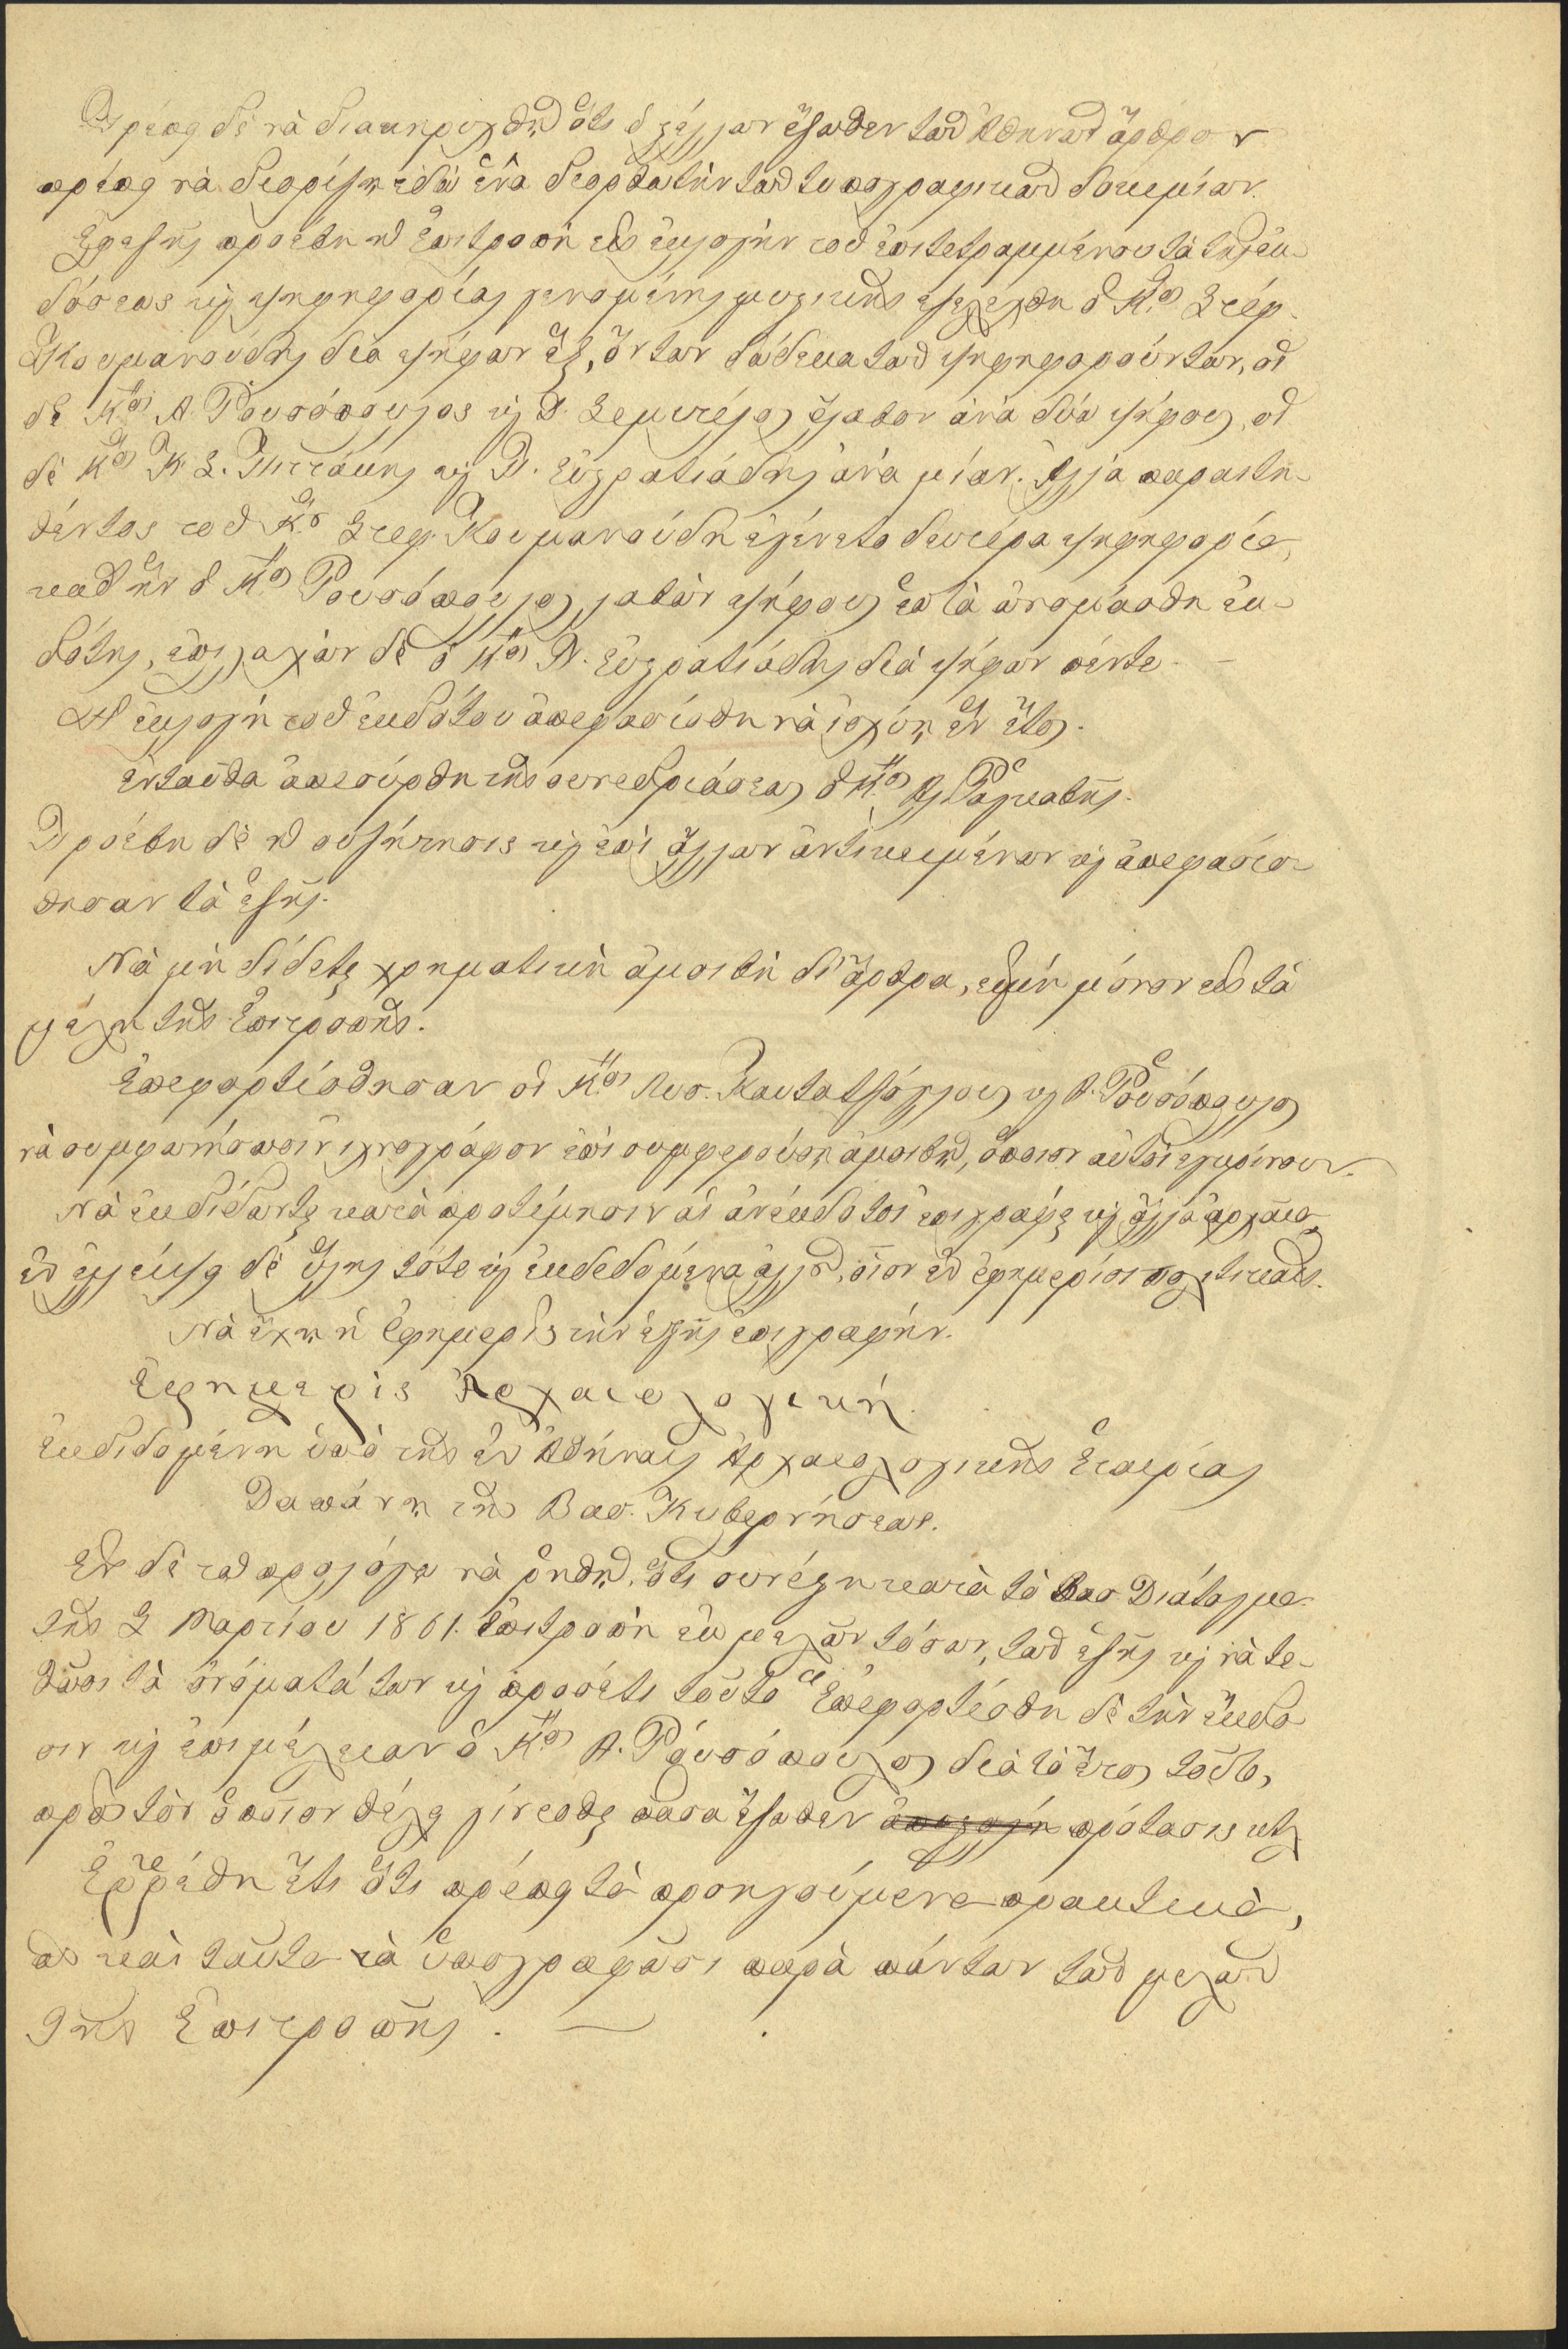 Πρέπει δὲ νὰ διακηρυχθῇ ὅτι ὁ θέλων ἔξωθεν τῶν Ἀθηνῶν ἄρθρον
πρέπει νὰ διορίσῃ ἐδῶ ἕνα διορθωτὴν τῶν τυπογραφικῶν δοκιμίων.
Ἐφεξῆς προέβη ἡ Ἐπιτροπὴ εἰς ἐκλογὴν τοῦ ἐπιτετραμμένου τὰ τῆς ἐκ-
δόσεως κ ψηφηφορίας γενομένης μυστικῆς ἐξελέχθη ὁ Κος Στέφ.
Κουμανούδης διὰ ψήφων ἓξ, ὄντων δώδεκα τῶν ψηφηφορούντων, οἱ
δὲ Κοι Α. Ῥουσόπουλος κ Δ. Σεμιτέλος ἔλαβον ἀνὰ δύο ψήφους, οἱ
δὲ Κοι Κ Σ. Πιττάκης κ Π. Εὐστρατιάδης ἀνὰ μίαν. Ἀλλὰ παραιτη-
θέντος τοῦ Κου Στεφ. Κουμανούδη ἐγένετο δευτέρα ψηφηφορία,
καθ' ἣν ὁ Κος Ῥουσόπουλος λαβὼν ψήφους ἑπτὰ ὠνομάσθη ἐκ-
δότης, ἐπιλαχὼν δὲ ὁ Κος Π. Εὐστρατιάδης διὰ ψήφων πέντε. —
Ἡ ἐκλογὴ τοῦ ἐκδότου ἀπεφασίσθη νὰ ἰσχύῃ ἓν ἔτος.
Ἐνταῦθα ἀπεσύρθη τῆς συνεδριάσεως ὁ Κος Ἀλ. Ῥαγκαβῆς.
Προέβη δὲ ἡ συζήτησις κ ἐπὶ ἄλλων ἀντικειμένων κ ἀπεφασίσ-
θησαν τὰ ἑξῆς.
Νὰ μὴ δίδεται χρηματικὴ ἀμοιβὴ δι' ἄρθρα, εἰμὴ μόνον εἰς τὰ
μέλη τῆς Ἐπιτροπῆς.
Ἐπεφορτίσθησαν οἱ Κοι Λυσ. Καυτατζόγλους κ Α. Ῥουσόπουλος
νὰ συμφωνήσωσιν ἰχνογράφον ἐπὶ συμφερούσῃ ἀμοιβῇ, ὅποιον αὐτοὶ ἐγκρίνουν.
Νὰ ἐκδίδωνται κατὰ προτίμησιν αἱ ἀνέκδοτοι ἐπιγραφαὶ κ ἄλλα ἀρχαῖα,
ἐν ἐλλείψει δὲ ὕλης τότε κ ἐκδεδομένα ἀλλοῦ, οἷον ἐν ἐφημερίσι πολιτικαῖς.
Νὰ ἔχῃ ἡ ἐφημερὶς τὴν ἑξῆς ἐπιγραφήν.
Ἐφημερὶς Ἀρχαιολογική.
ἐκδιδομένη ὑπὸ τῆς ἐν Ἀθήναις Ἀρχαιολογικῆς Ἑταιρίας
Δαπάνῃ τῆς Βασ. Κυβερνήσεως.
Ἐν δὲ τῷ προλόγῳ νὰ ῥηθῇ, ὅτι συνέστη κατὰ τὸ Βασ Διάταγμα
τῆς 2 Μαρτίου 1861. Ἐπιτροπὴ ἐκ μελῶν τόσων, τῶν ἑξῆς κ νὰ τε-
θῶσι τὰ ὀνόματά των κ προσέτι τοῦτο "Ἐπεφορτίσθη δὲ τὴν ἔκδο
σιν κ ἐπιμέλειαν ὁ Κος Α. Ῥουσόπουλος διὰ τὸ ἔτος τοῦτο,
πρὸς τὸν ὁποῖον θέλει γίνεσθαι πᾶσα ἔξωθεν πρότασις κτλ
Ἐῤῥέθη ἔτι ὅτι πρέπει τὰ προηγούμενα πρακτικὰ,
ὡς καὶ ταῦτα νὰ ὑπογραφῶσι παρὰ πάντων τῶν μελῶν
τῆς Ἐπιτροπῆς. —